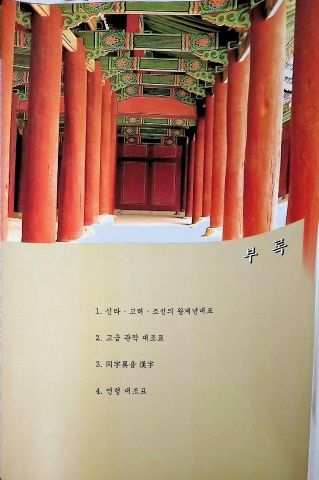 부록
1. 신라 · 고려 · 조선의 왕계년대표
2. 고급 관작 대조표
3. 同字異音 漢字
4. 연령 대조표